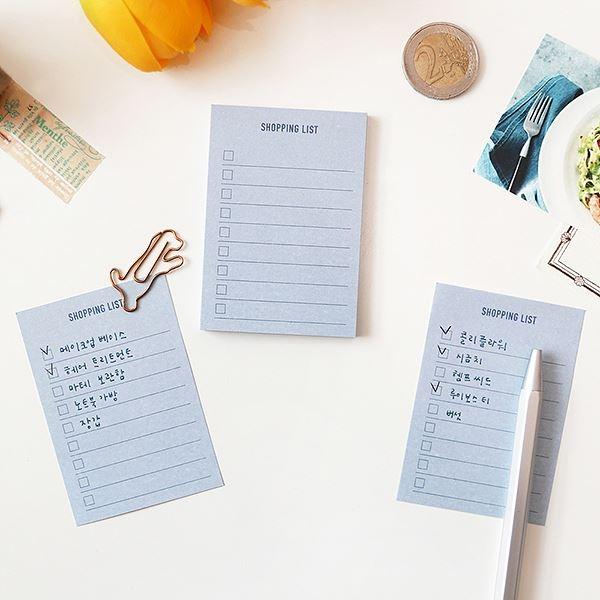 SHOPPING LIST
SHOPPING LIST
메이크업 베이스
헤어 트리트먼트
마테 보관함
노트북 가방
장갑
SHOPPING LIST
콜리플라워
시금치
햄프 씨드
루이보스 티
버섯
2
Menthe